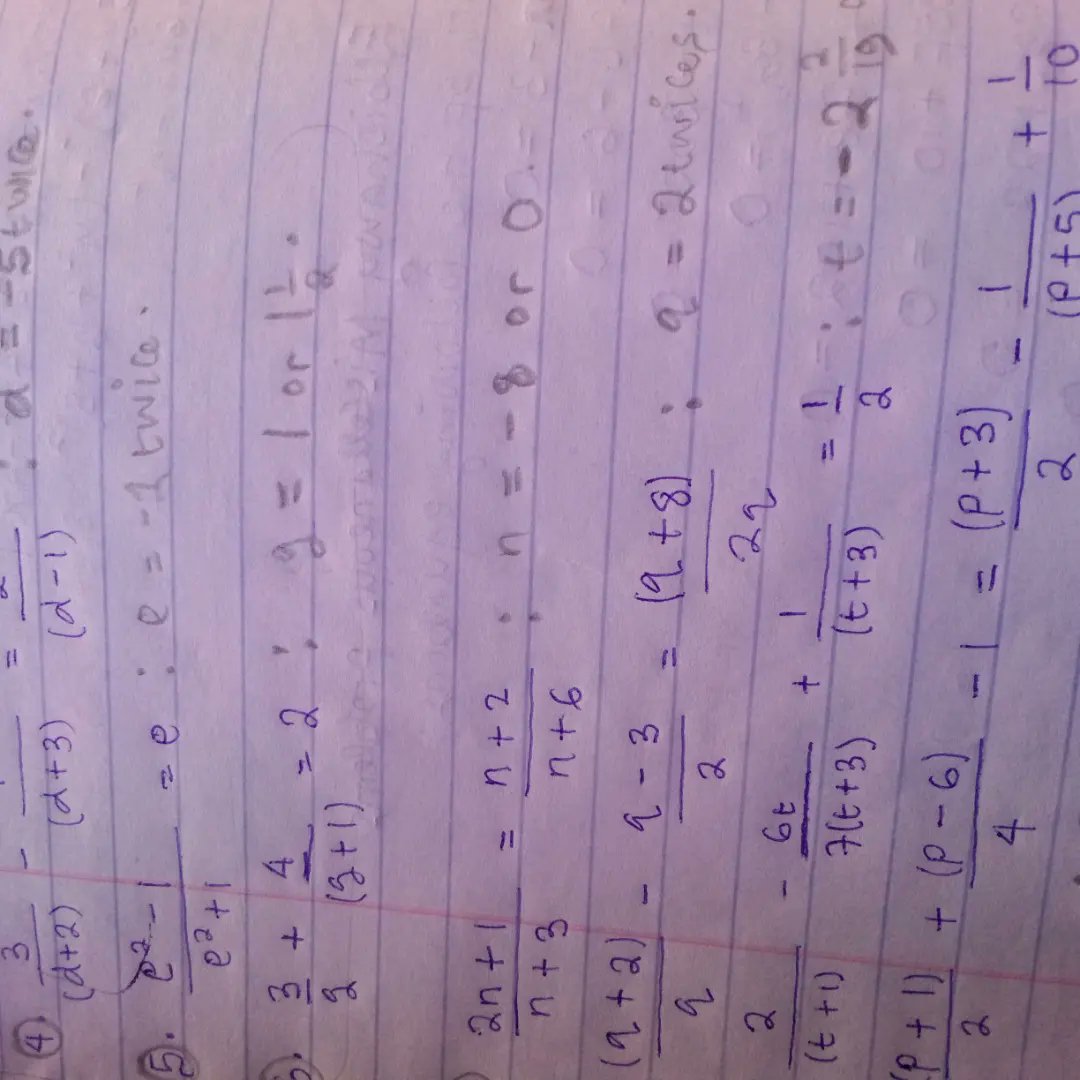 ④. 3/(d+2) - /(d+3) = 2/(d-1) : d = -5 twice.
⑤. e²-1/e²+1 = e : e = -1 twice.
3/g + 4/(g+1) = 2 : g = 1 or 1 1/2.
2n+1/n+3 = n+2/n+6 : n = -8 or 0.
(q+2)/q - q-3/2 = (q+8)/2q : q = 2 twice.
2/(t+1) - 6t/7(t+3) + 1/(t+3) = 1/2 : t = -2 2/19
(p+1)/2 + (p-6)/4 - 1 = (p+3)/2 - 1/(p+5) + 1/10